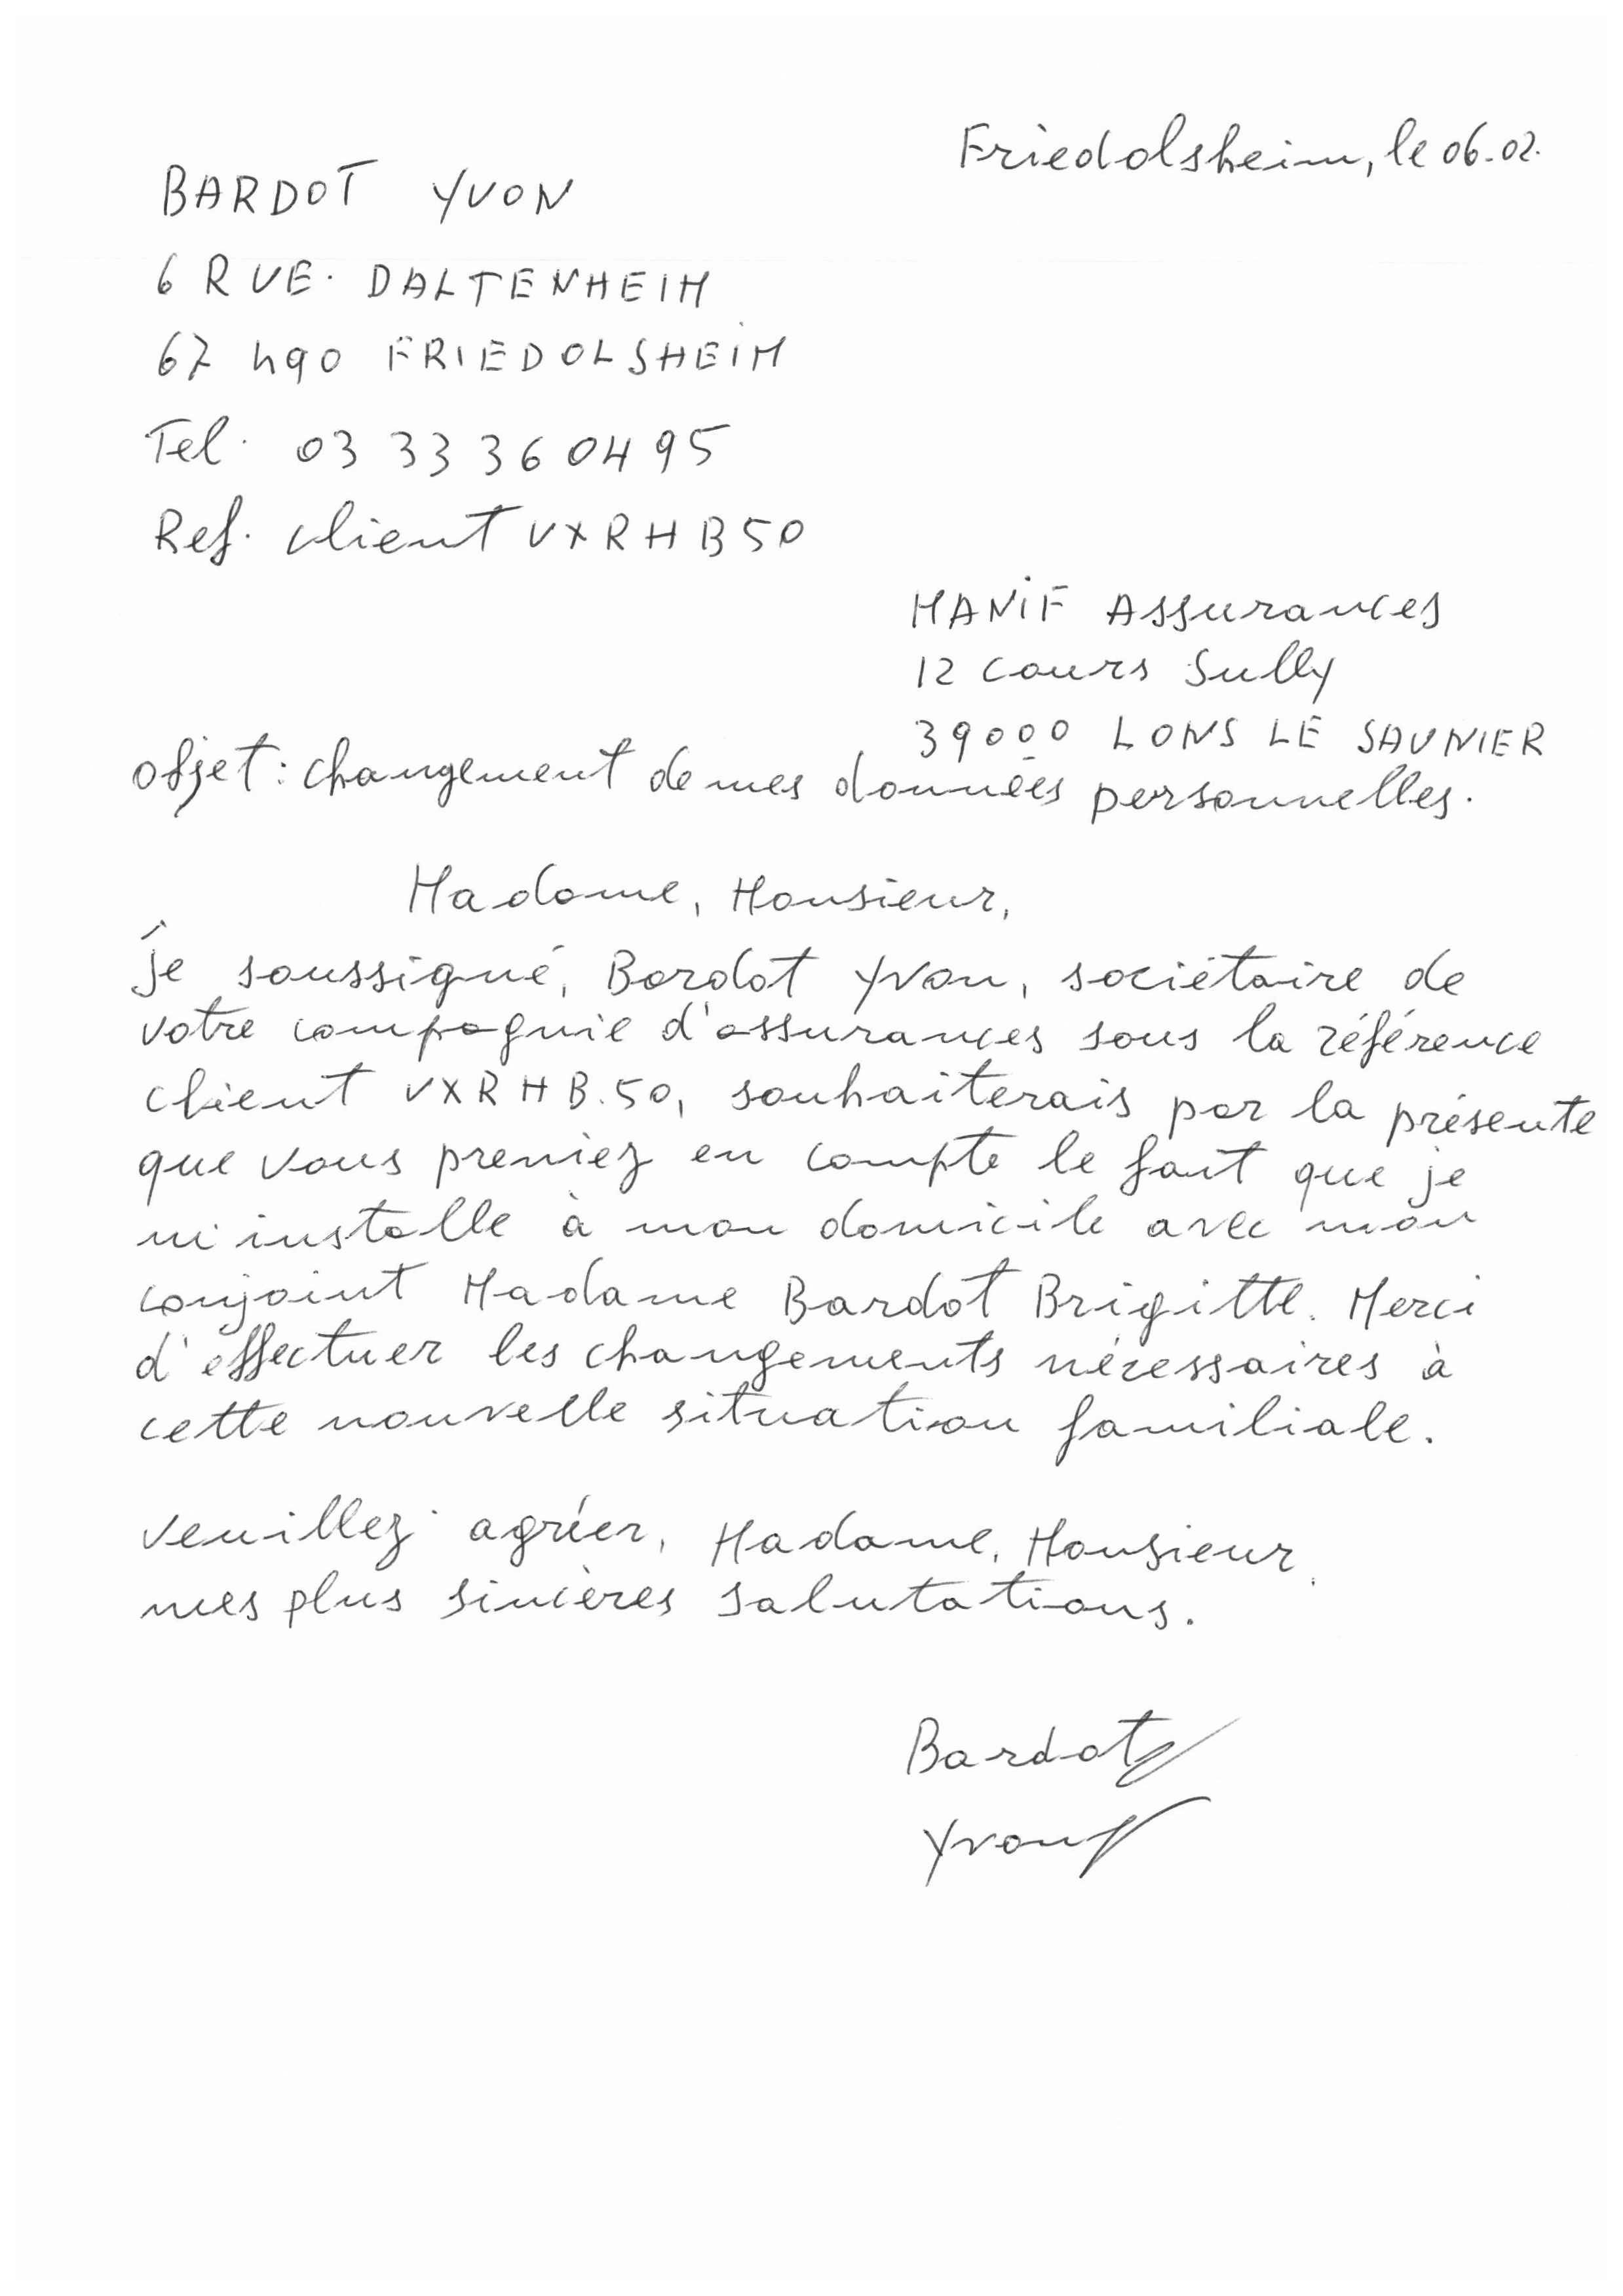 Friedolsheim, le 06.02.
BARDOT YVON
6 RUE. DALTENHEIM
67 490 FRIEDOLSHEIM
Tel. 03 33 36 04 95
Ref. client VXRHB50
MANIF Assurances
12 cours Sully
39000 LONS LE SAUNIER
objet : changement de mes données personnelles.
Madame, Monsieur,
je soussigné, Bardot Yvon, sociétaire de
votre compagnie d'assurances sous la référence
client VXRHB.50, souhaiterais par la présente
que vous preniez en compte le fait que je
m'installe à mon domicile avec mon
conjoint Madame Bardot Brigitte. Merci
d'effectuer les changements nécessaires à
cette nouvelle situation familiale.
Veuillez agréer, Madame, Monsieur,
mes plus sincères salutations.
Bardot
Yvon